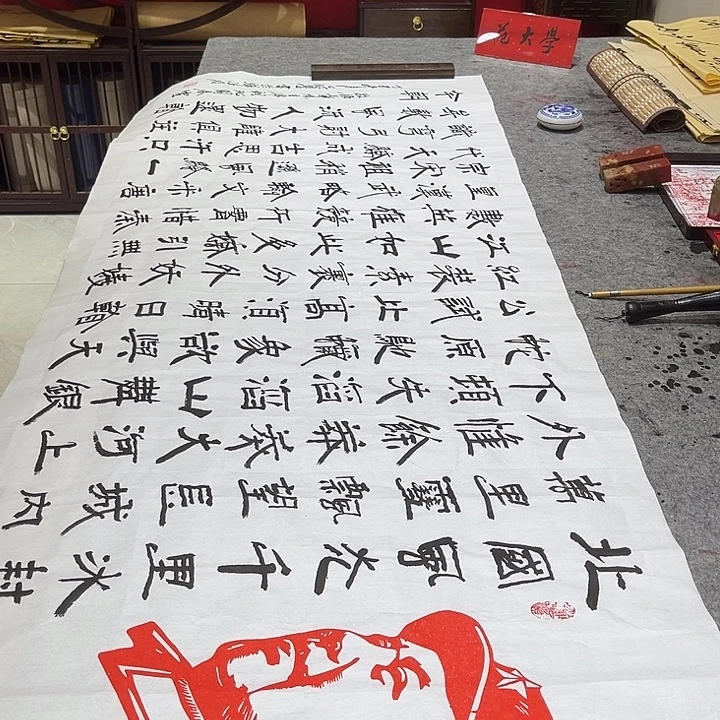 北國風光千里冰封
萬里雪飄望長城內
外惟餘莽莽大河上
下頓失滔滔山舞銀
蛇原馳蠟象欲與天
公試比高須晴日看
紅裝素裹分外妖嬈
江山如此多嬌引無
數英雄競折腰惜秦
皇漢武略輸文采唐
宗宋祖稍遜風騷一
代天驕成吉思汗只
識彎弓射大雕俱往
矣數風流人物還看
今朝
范大學